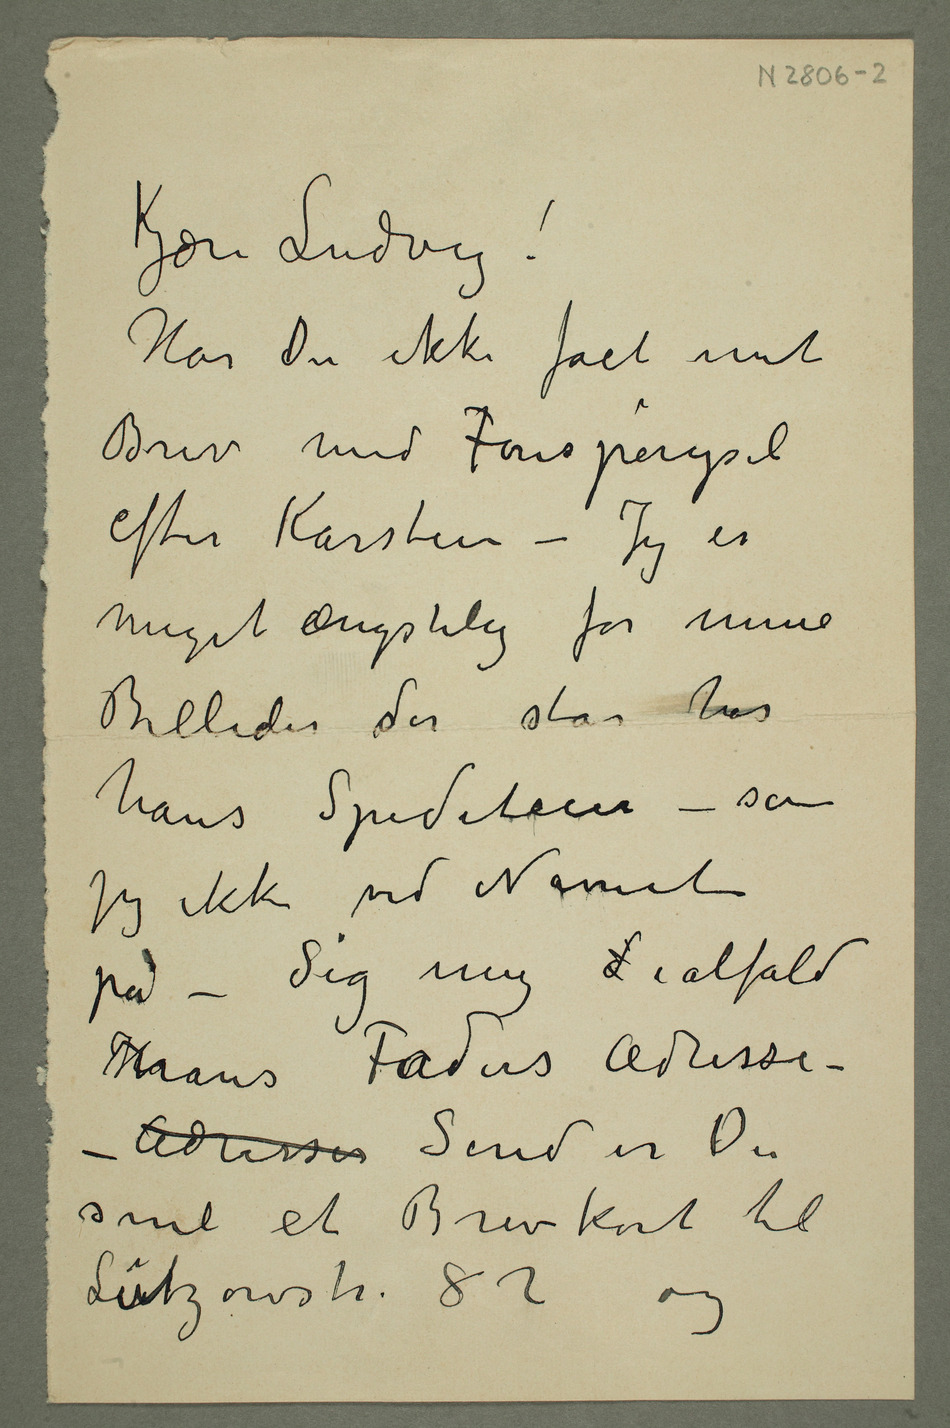 N 2806-2
Kjære Ludvig!
Har Du ikke faet mit
Brev med Forespörgsel
efter Karsten – Jeg er
meget ængstelig for mine
Billeder der står hos
hans Spediteur – som
jeg ikke ved Navnet
på – Sig mig ialfald
Hans Faders Adresse –
– Adresser Send er Du
snil et Brevkort til
Lützowstr. 82 og